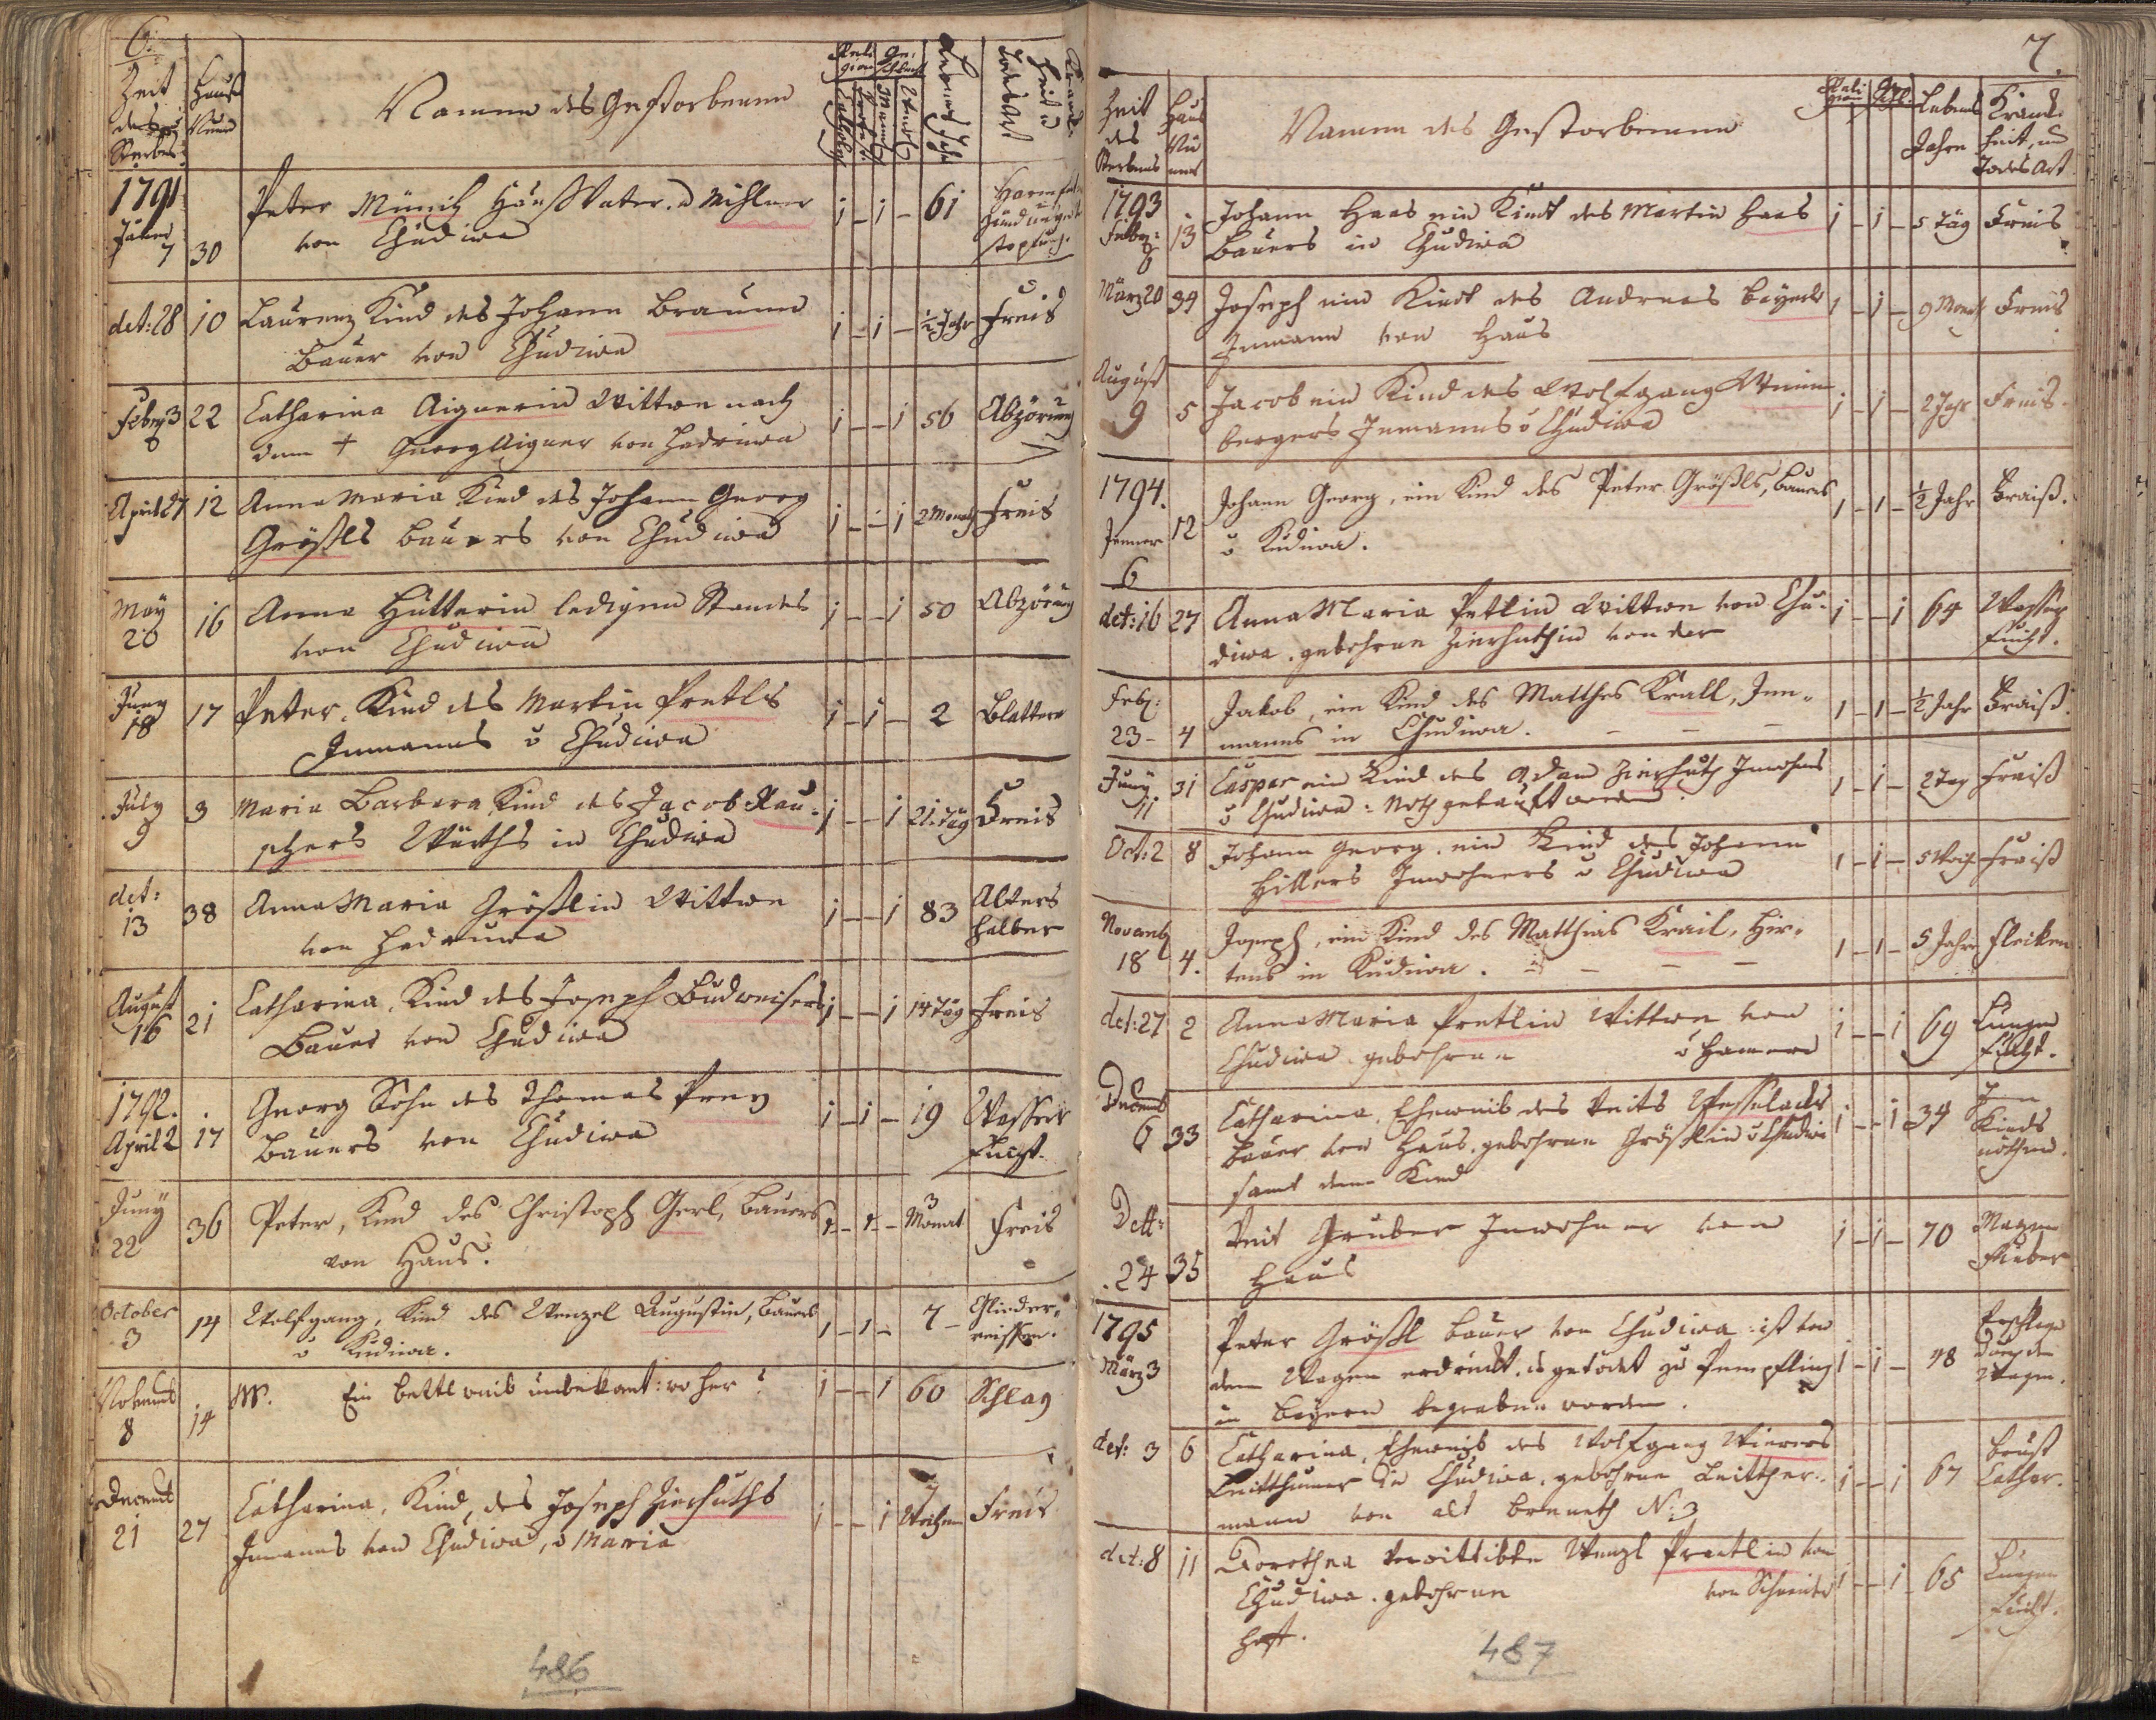 6.
Zeit
des
Sterbens
Hauß
Num
Namen des Gestorbenen
Reli
gion
Ge-
schlecht
Cathol.
Protest.
Mannl
Weibl
Lebens Jahr
Krank-
heit u
Todes Art
1791
Jäner
7
30
Peter Münich Hauß Vater. u Mihlner
von Chudiwa
i – i –
61
det: 28
10
Laurenz Kind des Johann Braunn
Bauer von Chudiwa
i – i –
½ Jahr
Freis
Febr. 3
22
Catharina Aignerin Wittwe nach
dem † Georg Aigner von Hadruwa
i – – i
56
Abzörung
April 27
12
Anna Maria Kind des Johann Georg
Größls Bauers von Chudiwa
i – – i
2 Monath
Freis
May
20
16
Anna Hütterin ledigen Standes
von Chudiwa
i – – i
50
Abzörung
Juny
18
17
Peter, Kind des Martin Pretls
Inmanns v Chudiwa
i – i –
2
Blattern
July
9
3
Maria Barbara Kind des Jacob Rau-
schers Würths in Chudiwa
i – – i
21. täg
Freis
det:
13
38
Anna Maria Größlin Wittwe
von Hadruwa
i – – i
83
Alters
halber
August
16
21
Catharina, Kind des Joseph Budweisers
Bauer von Chudiwa
i – – i
14 täg
Freis
1792.
April 2
17
Georg Sohn des Thomas Prey
Bauers von Chudiwa
i – i –
19
Wasser
sucht.
Juny
22
36
Peter, Kind des Christoph Gerl, Bauers
von Haus.
1 – 1 –
3
Monat
Freis
October
3
14
Wolfgang, Kind des Wenzel Augustin, Bauers
v Kudiwa.
1 – 1 –
7 –
Glieder-
reissen.
Novemb
8
14
Ein bettl weib unbekant: wo her?
i – – i
60
Schlag
Decemb
21
27
Catharina, Kind, des Joseph Zierhuths
Inmanns von Chudiwa, v Maria
i – – i
7
Wochen
Freis
486
7.
Zeit
des
Sterbens
Haus
Nu
mer
Namen des Gestorbenen
Reli
gion
Ge
schl.
Lebens
Jahre
Krank-
heit, und
Todes Art
1793
Febr:
6
13
Johann Haas ein Kindt des Martin Haas
Bauers in Chudiwa
i – i –
5 täg
Freis
März 20
34
Joseph ein Kindt des Andreas Beyerls
Inmann von Haus
1 – i –
9 Monath
Freis
August
9
5
Jacob ein Kind des Wolfgang Weinn
bergers Inmanns v Chudiwa
i – i –
2 Jahr
Freis.
1794.
Jenner
6
12
Johann Georg, ein Kind des Peter Größls, Bauers
v Kudiwa.
1 – 1 –
½ Jahr
Fraiß.
det: 16
27
Anna Maria Pretlin Wittwe von Chu-
diwa. gebohrne Zierhuthin von der
i – – i
64
Wasser
sucht.
Feb:
23 –
4
Jakob, ein Kind des Matthes Krall, Inn-
manns in Chudiwa. – –
1 – 1 –
½ Jahr
Fraiß.
Juny
11
31
Caspar ein Kind des Adam Zierhuth Inwohners
v Chudiwa: Noth getauft worden.
1 – i –
2 Tag
Fraiß
Oct: 2
8
Johann Georg. ein Kind des Johann
Hillers Inwohners v Chudiwa
1 – i –
5 Woch
Fraiß
Novemb
18
4.
Joseph, ein Kind des Matthias Krail, Hir-
tens in Kudiwa. – – – –
1 – 1 –
5 Jahre
Flecken
det: 27
2
Anna Maria Pretlin Wittwe von
Chudiwa gebohrne v Hamern
i – – i
69
Lungen
sucht.
Decemb
6
33
Catharina, Eheweib des Veits Wesselacks
Bauer von Haus. gebohrne Größlin v Chudiwa
samt dem Kind
i – – i
34
In
Kinds
nöthen.
Dett:
24
35
Veit Gruber Inwohner von
Haus
i – i –
70
Magen
Fieber
1795
März 3
Peter Größl Bauer von Chudiwa ist von
dem Wagen erdruckt, u getödet zu Rempfling
in Beyern begraben worden.
i – i –
48
Erschlagen
durch den
Wagen.
det: 3
6
Catharina, Eheweib des Wolfgang Wierers
Leitthumer in Chudiwa. gebohrne Leitther-
mann von alt Brenneth N: 3
i – – i
67
Brust
Cathar.
det: 8
11
Dorothea Verwittibte Wenzl Praetlin von
Chudiwa. gebohrne von Schneider
hoft.
i – – i
65
Lungen
sucht.
487